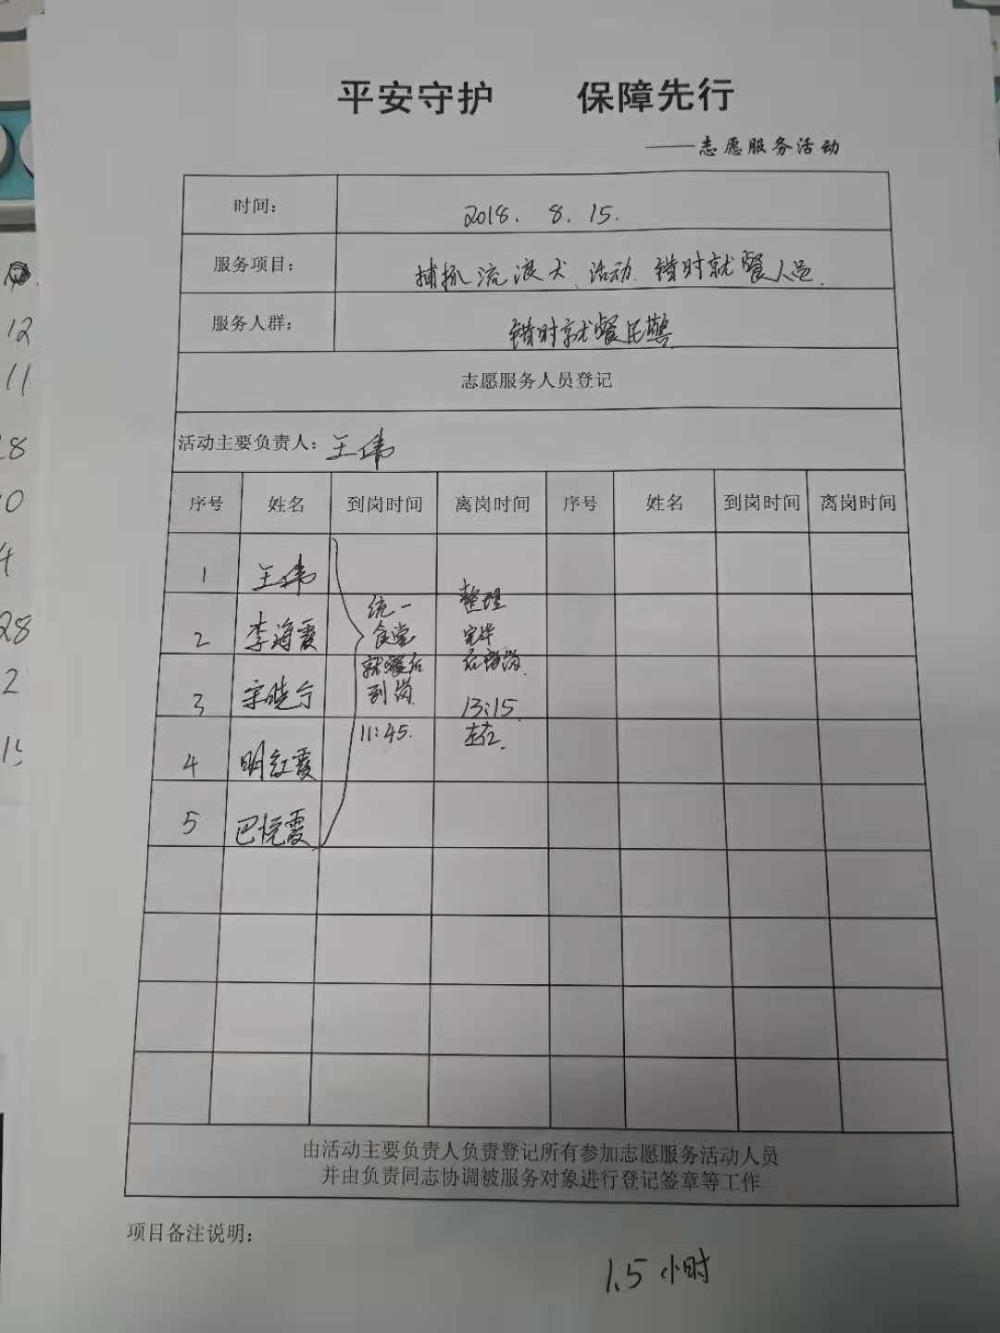 平安守护 保障先行
——志愿服务活动
时间: 2018. 8. 15.
服务项目: 捕抓流浪犬、活动、错时就餐人员.
服务人群: 错时就餐民警
志愿服务人员登记
活动主要负责人: 王伟
序号 姓名 到岗时间 离岗时间 序号 姓名 到岗时间 离岗时间
1 王伟
2 李海霞
3 宋晓宁
4 明红霞
5 巴悦霞
统一
食堂
就餐后
到岗
11:45.
整理
完毕
后离岗
13:15.
左右.
由活动主要负责人负责登记所有参加志愿服务活动人员
并由负责同志协调被服务对象进行登记签章等工作
项目备注说明:
1.5小时
12
11
28
2